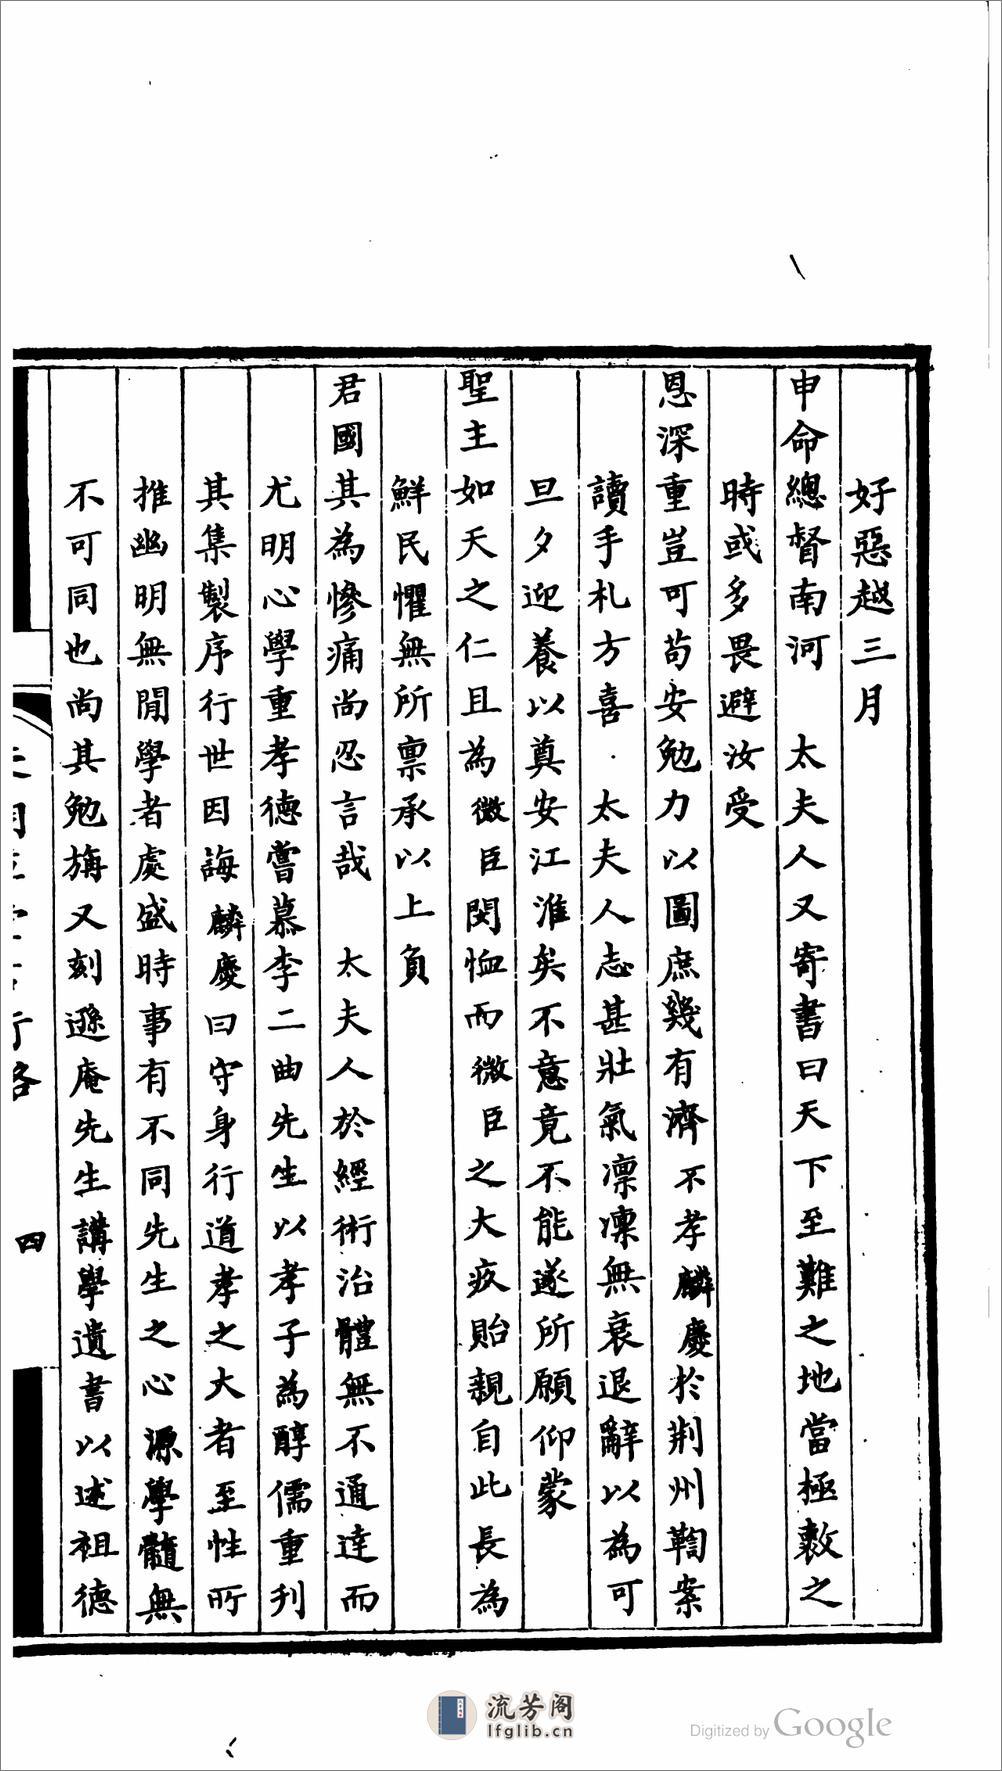 好惡越三月
申命總督南河　太夫人又寄書曰天下至難之地當極敷之
時或多畏避汝受
恩深重豈可苟安勉力以圖庶幾有濟不孝麟慶於荆州鞫案
讀手札方喜　太夫人志甚壯氣凜凜無衰退辭以為可
旦夕迎養以奠安江淮矣不意竟不能遂所願仰蒙
聖主如天之仁且為微臣閔恤而微臣之大疚貽親自此長為
鮮民懼無所禀承以上負
君國其為慘痛尚忍言哉　太夫人於經術治體無不通達而
尤明心學重孝德嘗慕李二曲先生以孝子為醇儒重刋
其集製序行世因誨麟慶曰守身行道孝之大者至性所
推幽明無閒學者處盛時事有不同先生之心源學髓無
不可同也尚其勉旃又刻遜庵先生講學遺書以述祖德
行略
四
流芳阁
lfglib.cn
Digitized by Google